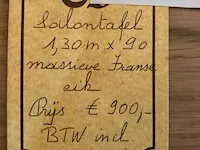 Salontafel
1,30m x 90
massieve Franse
eik
Prijs € 900,-
BTW incl.